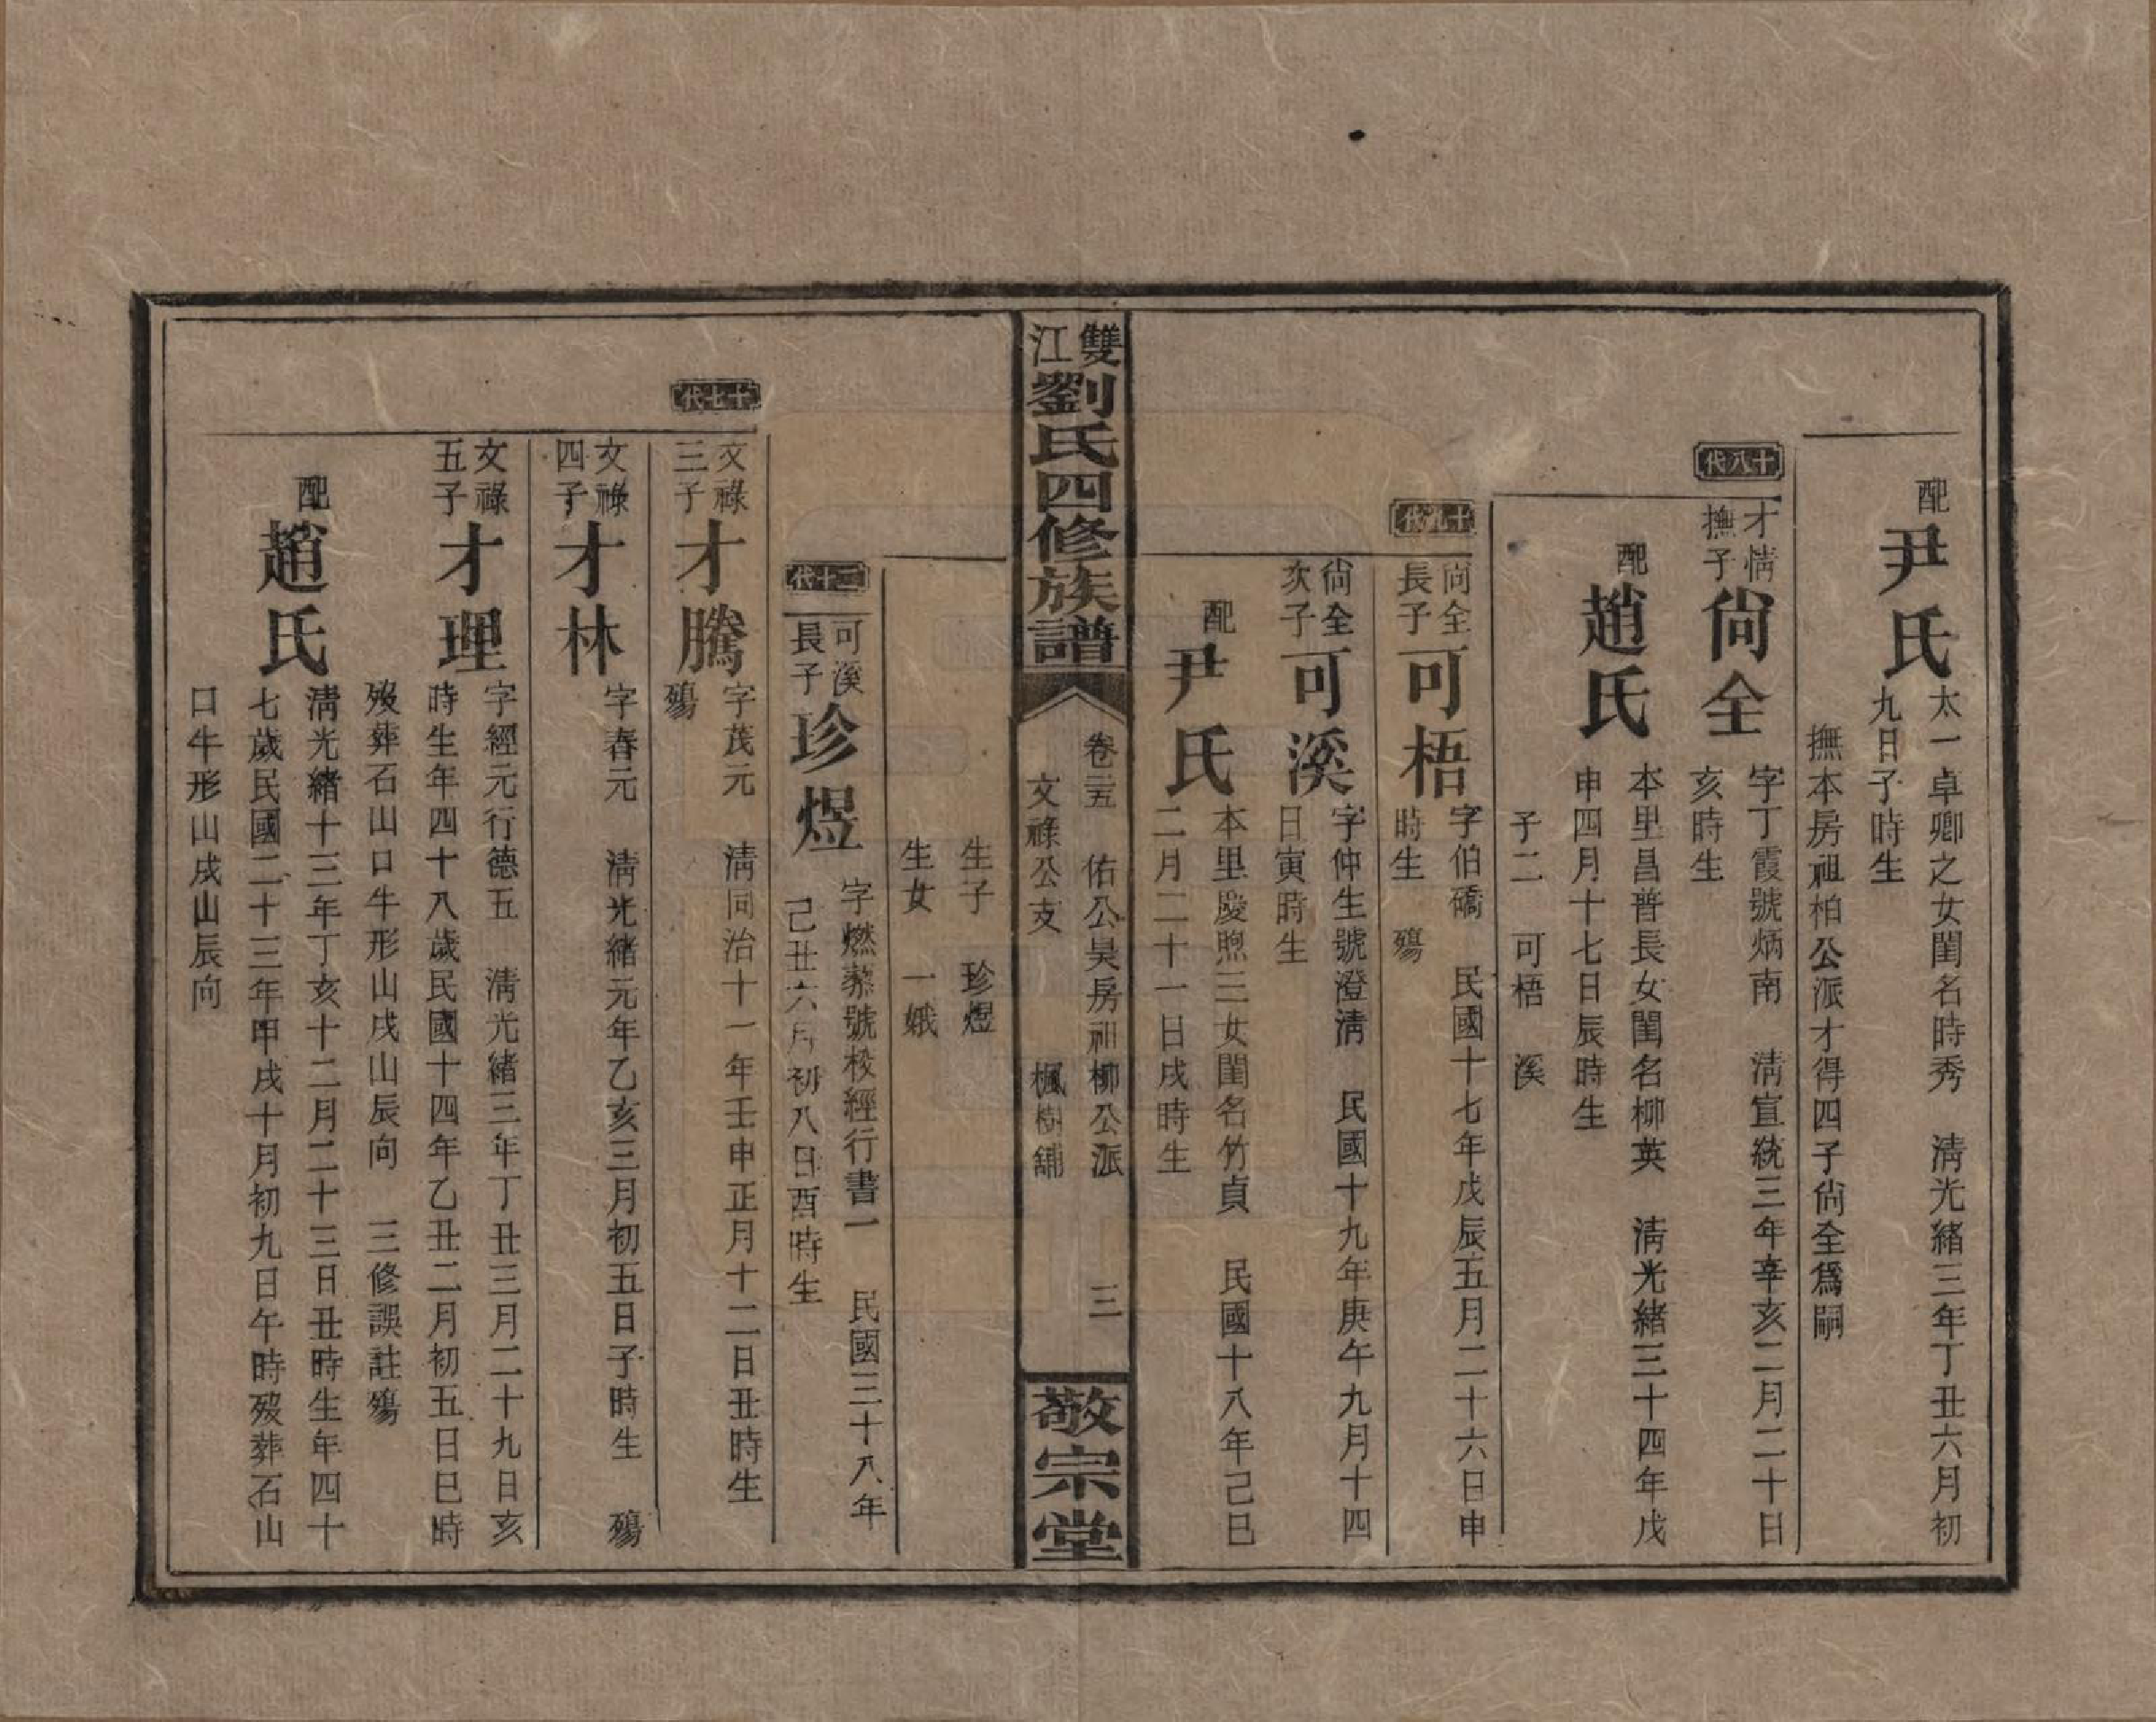 配
尹氏
太一卓卿之女閨名時秀　清光緒三年丁丑六月初
九日子時生
撫本房祖柏公派才得四子尙全爲嗣
十八代
才情
撫子
尙全
字丁霞號炳南　淸宣統三年辛亥二月二十日
亥時生
配
趙氏
本里昌普長女閨名柳英　淸光緒三十四年戊
申四月十七日辰時生
子二　可梧　溪
十九代
尙全
長子
可梧
字伯礄　民國十七年戊辰五月二十六日申
時生　殤
尙全
次子
可溪
字仲生號澄淸　民國十九年庚午九月十四
日寅時生
配
尹氏
本里慶煦三女閨名竹貞　民國十八年己巳
二月二十一日戌時生
雙江
劉氏四修族譜
卷二五　佑公昊房祖柳公派　三
文祿公支　楓樹舖
敬宗堂
生子　珍煜
生女　一娥
二十代
可溪
長子
珍煜
字燃藜號校經行書一　民國三十八年
己丑六月初八日酉時生
十七代
文祿
三子
才騰
字茂元　淸同治十一年壬申正月十二日丑時生
殤
文祿
四子
才林
字春元　淸光緒元年乙亥三月初五日子時生　殤
文祿
五子
才理
字經元行德五　淸光緒三年丁丑三月二十九日亥
時生年四十八歲民國十四年乙丑二月初五日巳時
歿葬石山口牛形山戌山辰向　三修誤註殤
配
趙氏
淸光緒十三年丁亥十二月二十三日丑時生年四十
七歲民國二十三年甲戌十月初九日午時歿葬石山
口牛形山戌山辰向